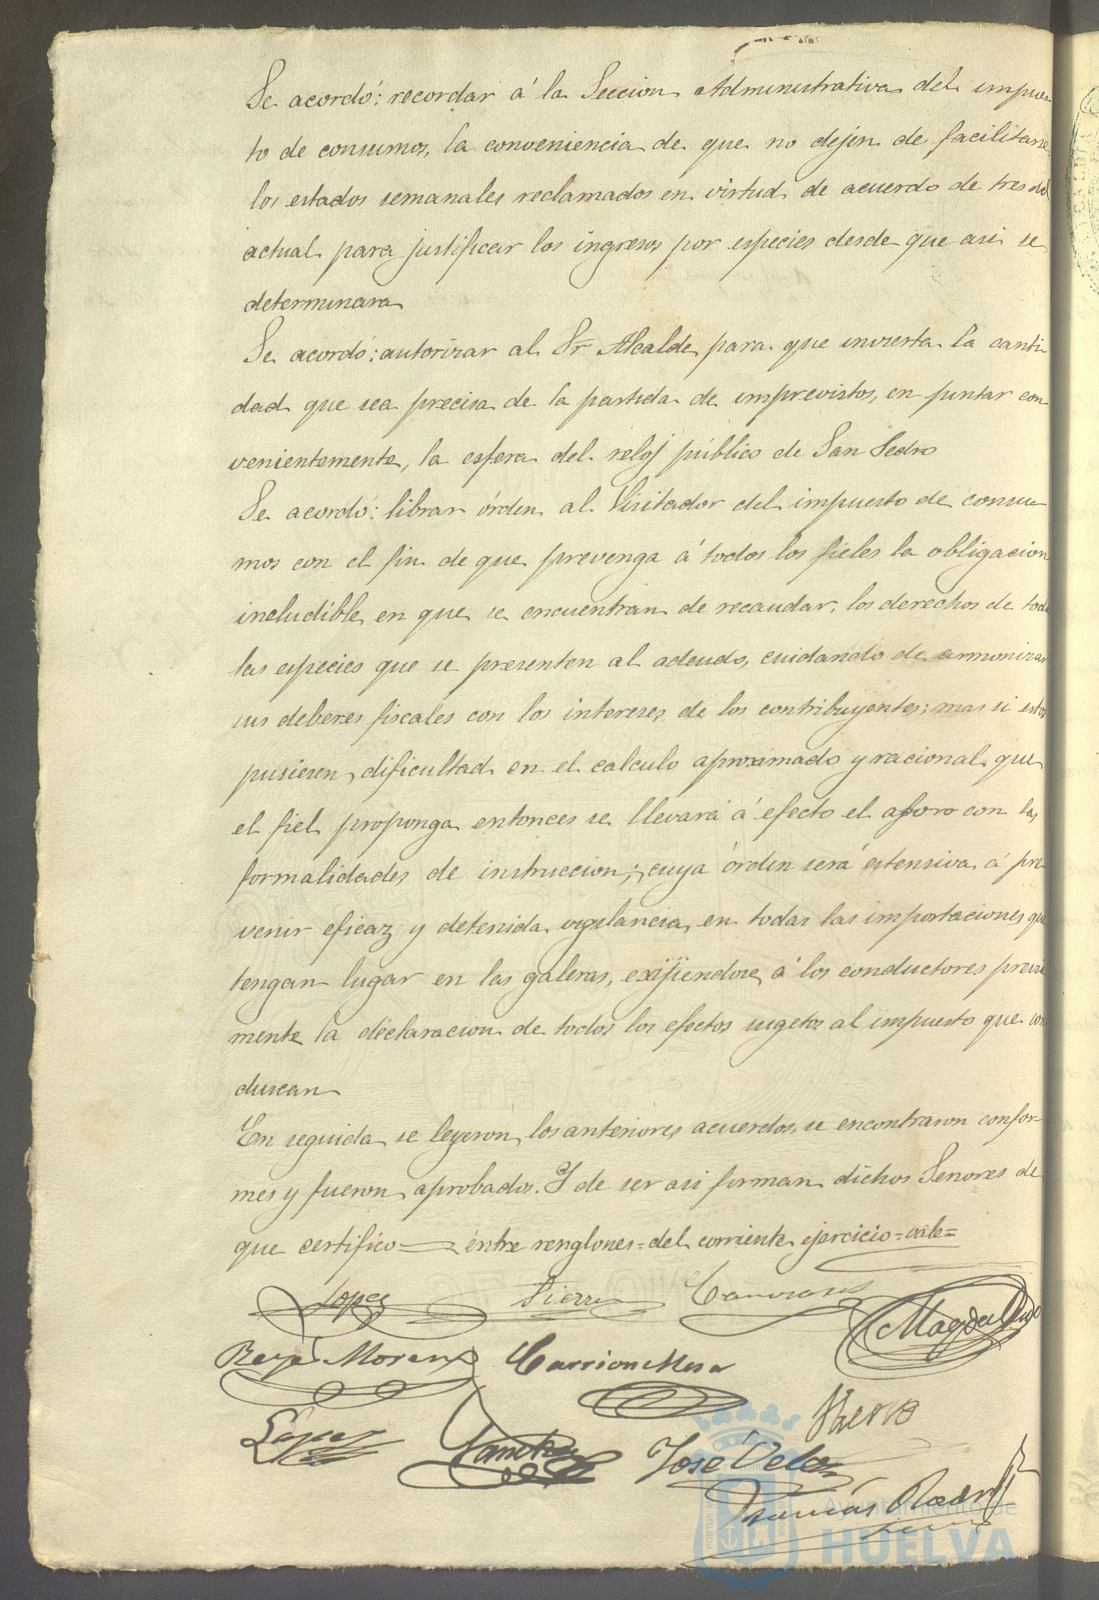 Se acordó: recordar á la Seccion Administrativa del impues
to de consumos, la conveniencia de que no dejen de facilitarse
los estados semanales reclamados en virtud de acuerdo de tres del
actual para justificar los ingresos por especies desde que asi se
determinara
Se acordó: autorizar al Sr Alcalde para que invierta la canti
dad que sea precisa de la partida de imprevistos, en pintar con
venientemente, la esfera del reloj público de San Pedro
Se acordó: librar órden al Visitador del impuesto de consu
mos con el fin de que prevenga á todos los fieles la obligacion
ineludible en que se encuentran de recaudar, los derechos de todas
las especies que se presenten al adeudo, cuidando de armonizar
sus deberes fiscales con los intereses de los contribuyentes; mas si estos
pusieren dificultad en el calculo aproximado y racional que
el fiel proponga entonces se llevará á efecto el aforo con las
formalidades de instruccion; cuya órden será estensiva á pre
venir eficaz y detenida vigilancia, en todas las importaciones que
tengan lugar en las galeras, exijiendose á los conductores previa
mente la declaracion de todos los efectos sugetos al impuesto que con
duzcan
En seguida se leyeron los anteriores acuerdos, se encontraron confor-
mes y fueron aprobados. Y de ser asi firman dichos Señores de
que certifico= entre renglones=del corriente ejercicio=vale=
Lopez Sierra
Moreno Carrion Mesa
López Sanchez José Velez
Tomás Rodrig
Ayuntamiento de
HUELVA